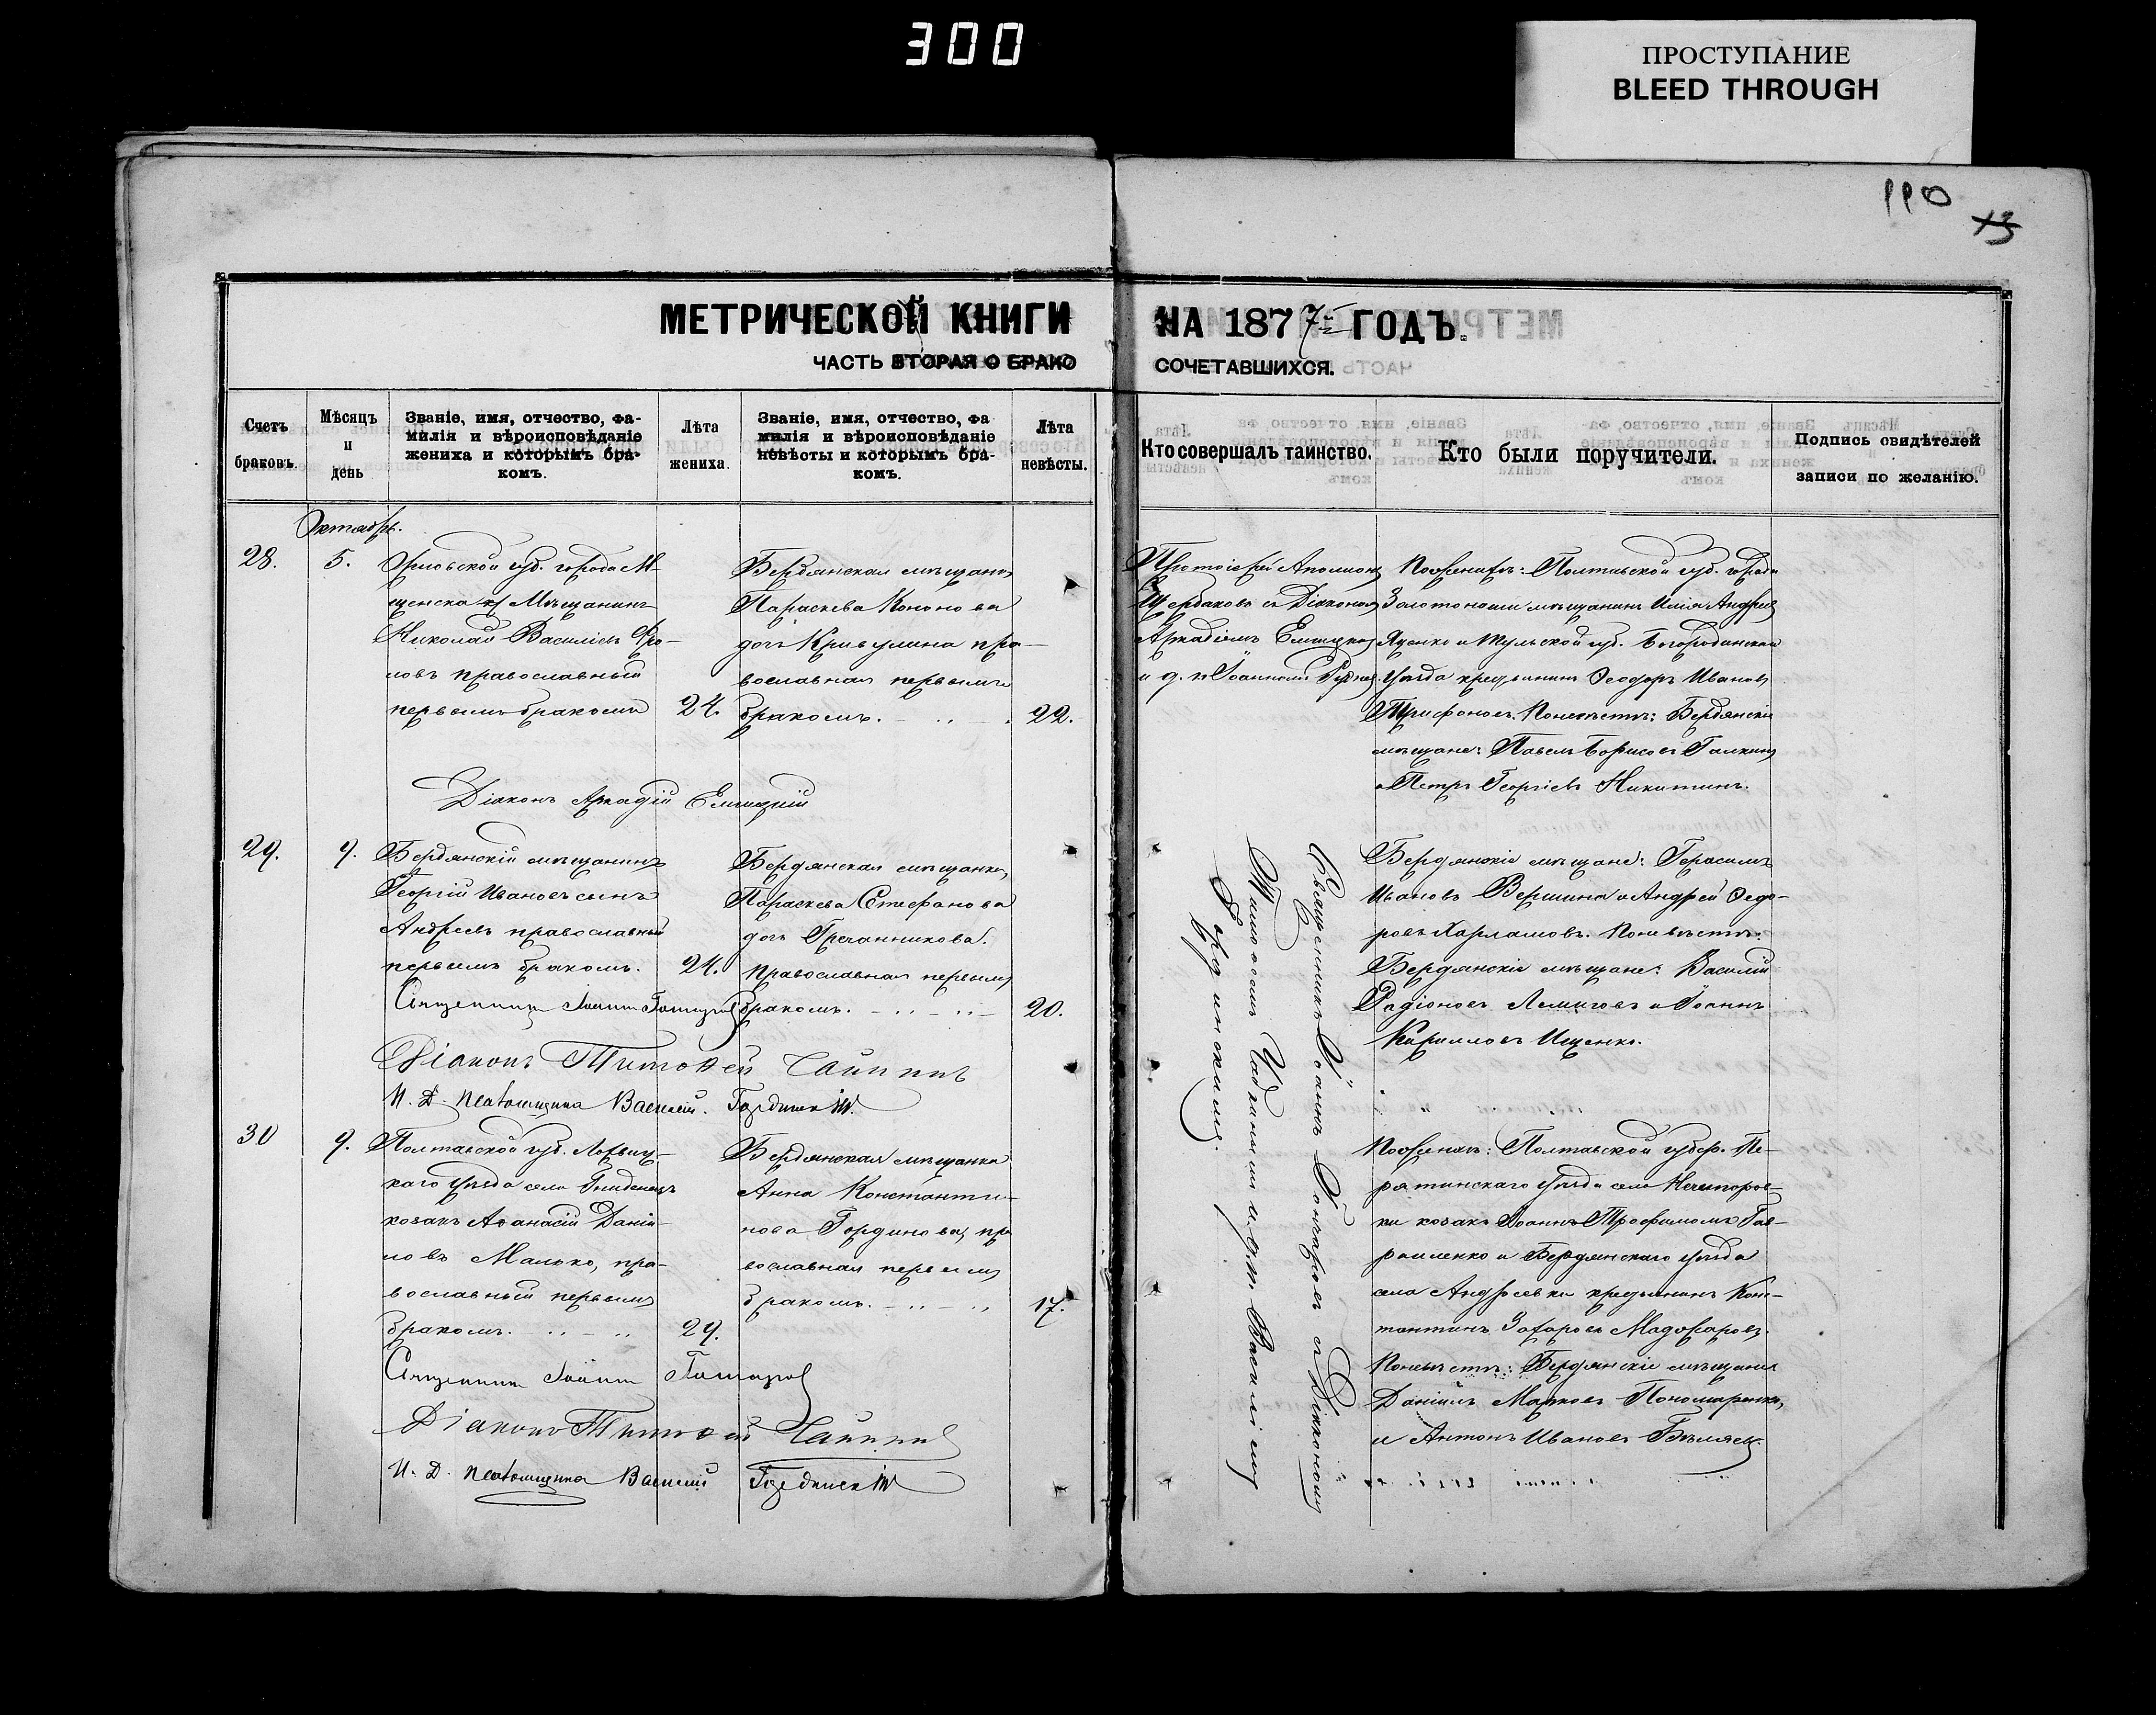 300
ПРОСТУПАНИЕ
BLEED THROUGH
110
13
МЕТРИЧЕСКОЙ КНИГИ НА 1877 ГОДЪ.
ЧАСТЬ ВТОРАЯ О БРАКОСОЧЕТАВШИХСЯ.
Счетъ браковъ.
Мѣсяцъ и день
Званіе, имя, отчество, фа-
милія и вѣроисповѣданіе
жениха и которымъ бра-
комъ.
Лѣта жениха.
Званіе, имя, отчество, фа
милія и вѣроисповѣданіе
невѣсты и которымъ бра-
комъ.
Лѣта невѣсты.
Кто совершалъ таинство.
Кто были поручители.
Подпись свидѣтелей
записи по желанію.
Октябрь.
28.
5.
Орловской губ. города М-
ценска Мѣщанинъ
Николай Василіевъ Фро-
ловъ православный
первымъ бракомъ
24.
Бердянская мѣщанка
Параскева Кононова
дочь Кривулина пра-
вославная первымъ
бракомъ.
22.
Протоіерей
Щербаковъ съ Діакономъ
Аркадіемъ
и д. п. Іоанномъ
По женихѣ: Полтавской губ. города
Золотоноши мѣщанинъ Илія Андреевъ
Яценко и Тульской губ. Богородицкаго
уѣзда крестьянинъ Ѳеодоръ Ивановъ
Трифоновъ. По невѣстѣ: Бердянскіе
мѣщане: Павелъ Борисовъ Галкинъ
и Петръ Георгіевъ Никитинъ.
Діаконъ Аркадій
29.
9.
Бердянскій мѣщанинъ
Георгій Ивановъ сынъ
Андреевъ православный
первымъ бракомъ.
24.
Бердянская мѣщанка,
Параскева Стефанова
дочь Гречанникова.
православная первымъ
бракомъ.
20.
Священникъ Іоаннъ Гончаровъ
Діаконъ Тимоѳей
И. Д. Псаломщика Василій Гординскій
Священникъ Іоаннъ Гончаровъ съ Діакономъ
Тимоѳеемъ и д. п. Василіемъ
Гординскимъ.
Бердянскіе мѣщане: Герасимъ
Ивановъ Вершина и Андрей Ѳедо-
ровъ Харламовъ. По невѣстѣ:
Бердянскіе мѣщане: Василій
Радіоновъ и Іоаннъ
Кирилловъ Ищенко.
30
9.
Полтавской губ. Лохвиц-
каго уѣзда села
козакъ Аѳанасій Даніи-
ловъ Малько, пра-
вославный первымъ
бракомъ.
29.
Бердянская мѣщанка
Анна Константи-
нова Гординова, пра
вославная первымъ
бракомъ.
17.
По женихѣ: Полтавской губер. Пи-
рятинскаго уѣзда села Нечипоров-
ки козакъ Іоаннъ Трофимовъ Гав-
риленко и Бердянскаго уѣзда
села Андреевки крестьянинъ Конс-
тантинъ Захаровъ
По невѣстѣ: Бердянскіе мѣщане
Даніилъ Марковъ Пономаренко,
и Антонъ Ивановъ Бѣляевъ.
Священникъ Іоаннъ Гончаровъ
Діаконъ Тимоѳей
И. Д. Псаломщика Василій Гординскій